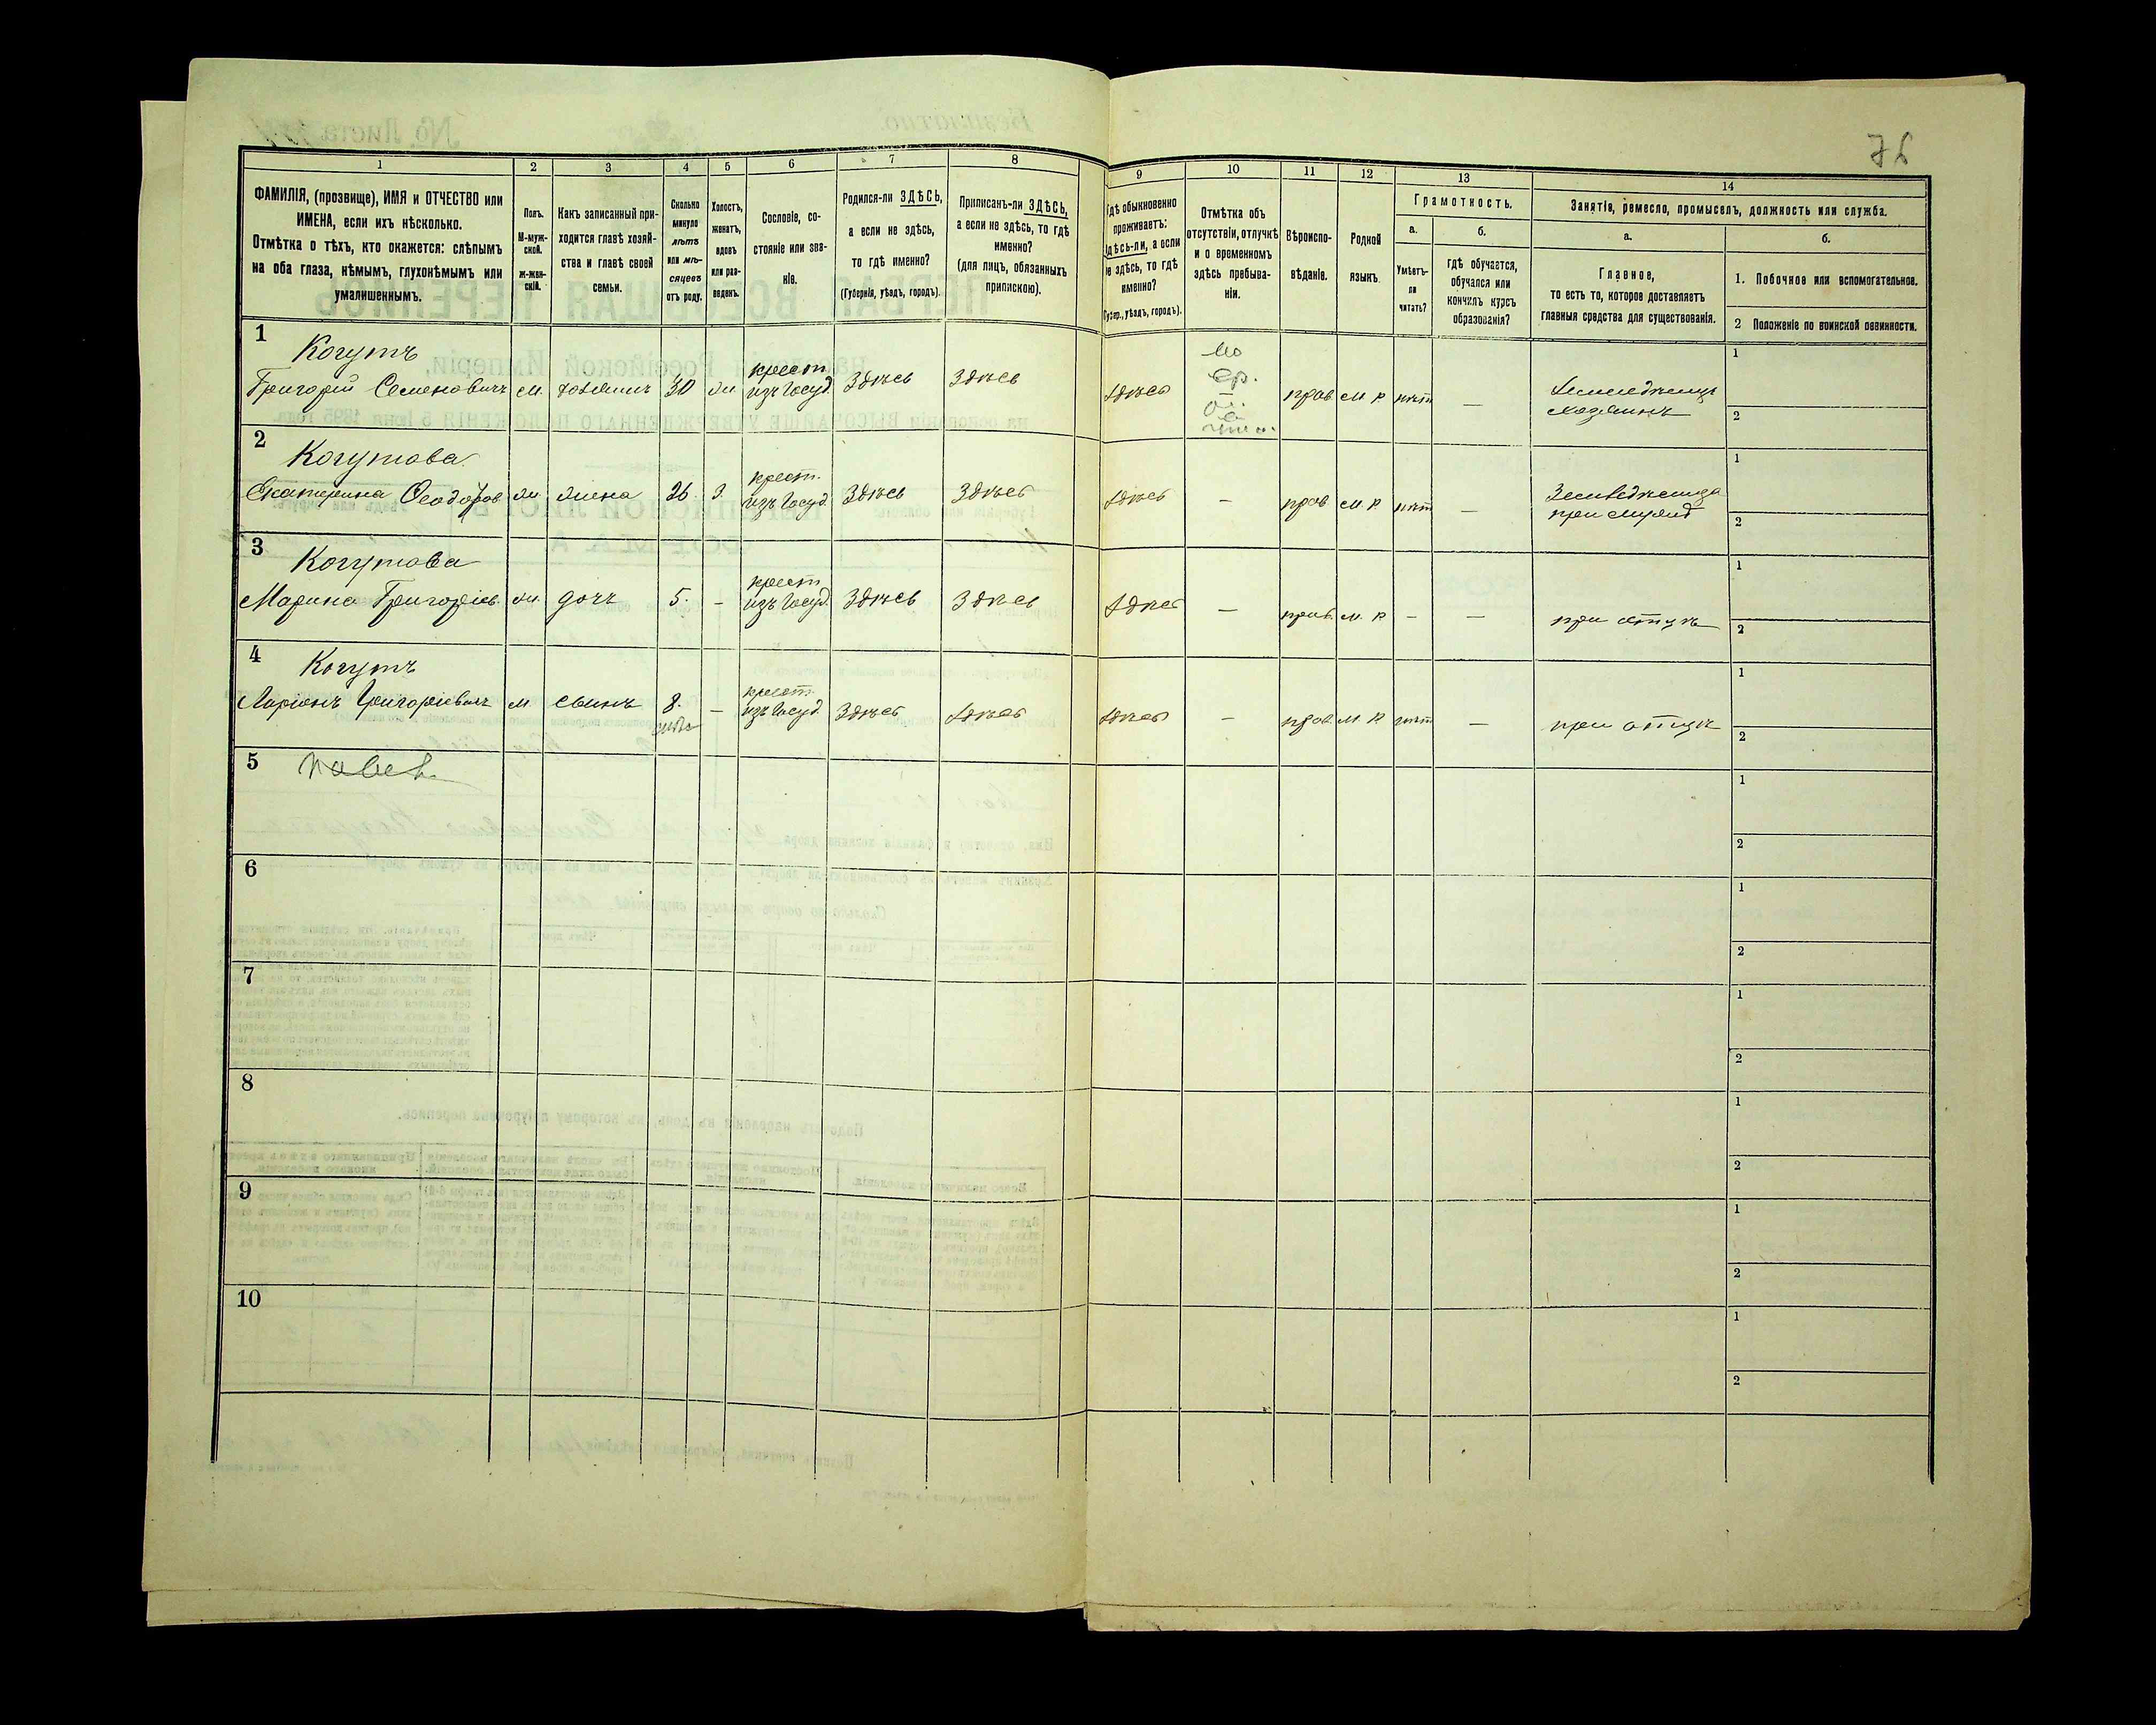 76
1 2 3 4 5 6 7 8 9 10 11 12 13 14
ФАМИЛІЯ, (прозвище), ИМЯ и ОТЧЕСТВО или
ИМЕНА, если ихъ нѣсколько.
Отмѣтка о тѣхъ, кто окажется: слѣпымъ
на оба глаза, нѣмымъ, глухонѣмымъ или
умалишеннымъ.
Полъ.
М-муж-
ской.
ж-жен-
скій.
Какъ записанный при-
ходится главѣ хозяй-
ства и главѣ своей
семьи.
Сколько
минуло
лѣтъ
или мѣ-
сяцевъ
отъ роду.
Холостъ,
женатъ,
вдовъ
или раз-
веденъ.
Сословіе, со-
стояніе или зва-
ніе.
Родился-ли ЗДѢСЬ,
а если не здѣсь,
то гдѣ именно?
(Губернія, уѣздъ, городъ).
Приписанъ-ли ЗДѢСЬ,
а если не здѣсь, то гдѣ
именно?
(для лицъ, обязанныхъ
припискою).
гдѣ обыкновенно
проживаетъ:
здѣсь-ли, а если
не здѣсь, то гдѣ
именно?
(Губер., уѣздъ, городъ).
Отмѣтка объ
отсутствіи, отлучкѣ
и о временномъ
здѣсь пребыва-
ніи.
Вѣроиспо-
вѣданіе.
Родной
языкъ.
Грамотность.
а.
Умѣетъ-
ли
читать?
б.
гдѣ обучается,
обучался или
кончилъ курсъ
образованія?
Занятія, ремесло, промыселъ, должность или служба.
а.
Главное,
то есть то, которое доставляетъ
главныя средства для существованія.
б.
1. Побочное или вспомогательное.
2 Положеніе по воинской повинности.
1
Когутъ
Григорій Семеновичъ м. хозяинъ 30 ж. крест. изъ госуд. Здѣсь Здѣсь Здѣсь прав. м р нѣтъ — Земледѣлецъ
хозяинъ
1
2
2
Когутова
Екатерина Ѳеодоров. ж. жена 26. з. крест. изъ госуд. Здѣсь Здѣсь Здѣсь — прав. м. р нѣтъ — при мужѣ
1
2
3
Когутова
Марина Григоріев. ж. дочь 5. — крест. изъ госуд. Здѣсь Здѣсь Здѣсь — прав. м. р — — при отцѣ
1
2
4
Когутъ
Ларіонъ Григоріевичъ м сынъ 8. — крест. изъ госуд. Здѣсь Здѣсь Здѣсь — прав. м. р. нѣтъ — при отцѣ
1
2
5
1
2
6
1
2
7
1
2
8
1
2
9
1
2
10
1
2